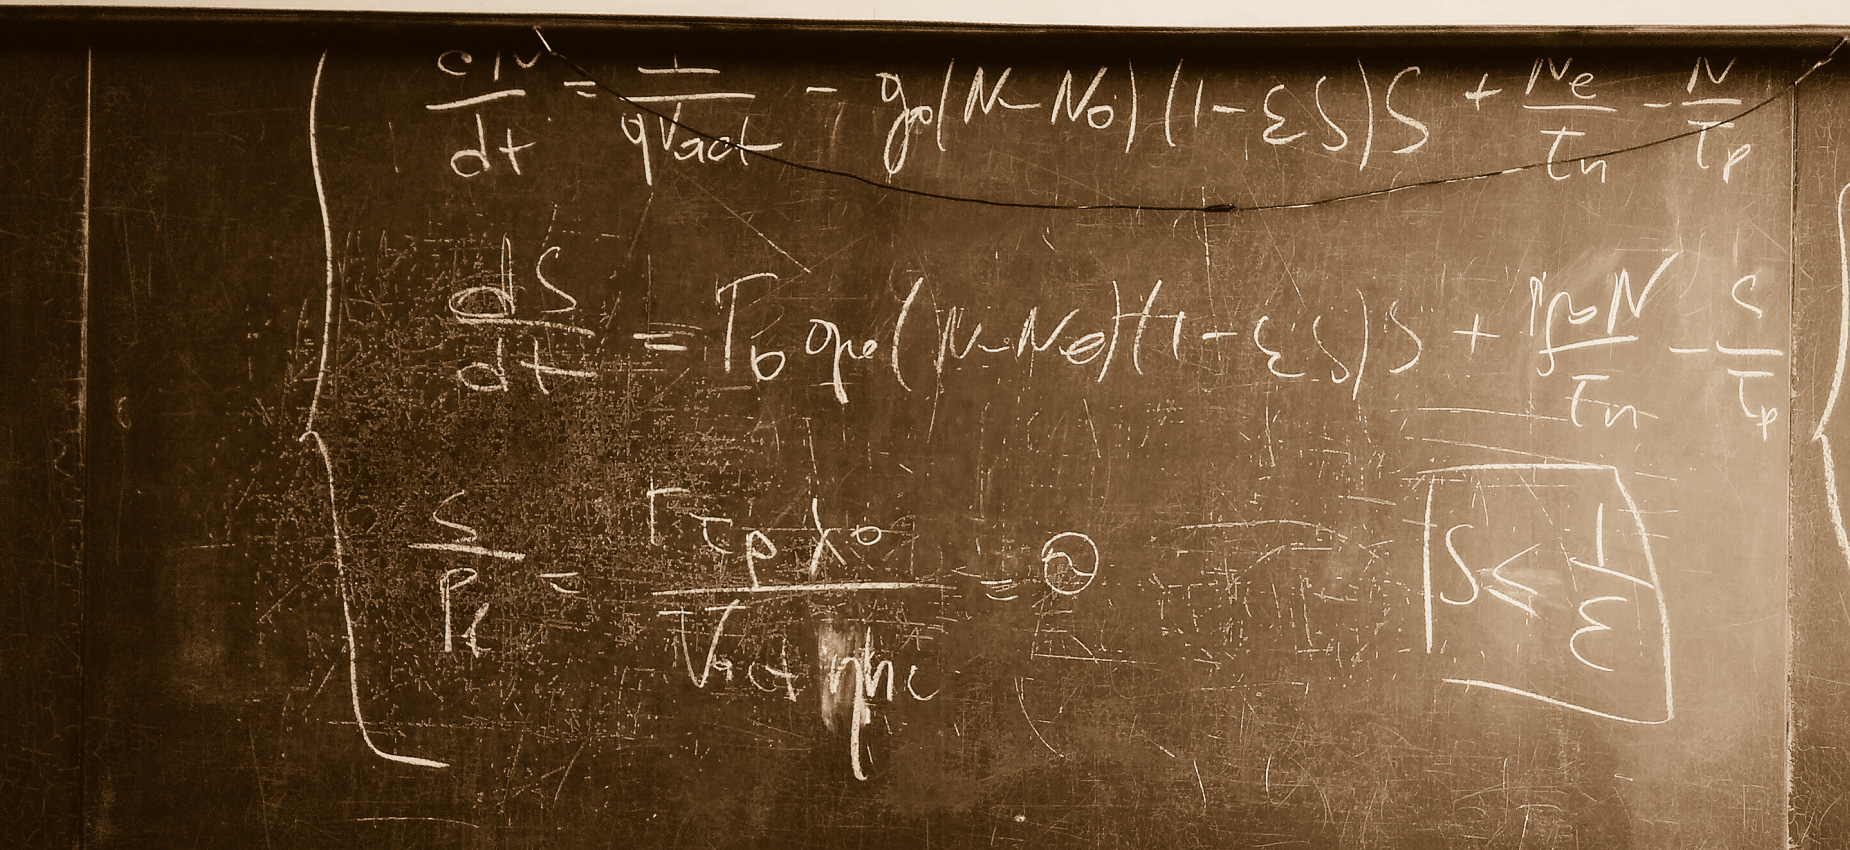 dN/dt = I/qVact - g0(N-N0)(1-εS)S + Ne/τn - N/τp
dS/dt = Γ0 g0(N-N0)(1-εS)S + Γβ0N/τn - S/τp
S/Pf = Γτpλ0/Vact ηhc = ②
S ≤ 1/ε